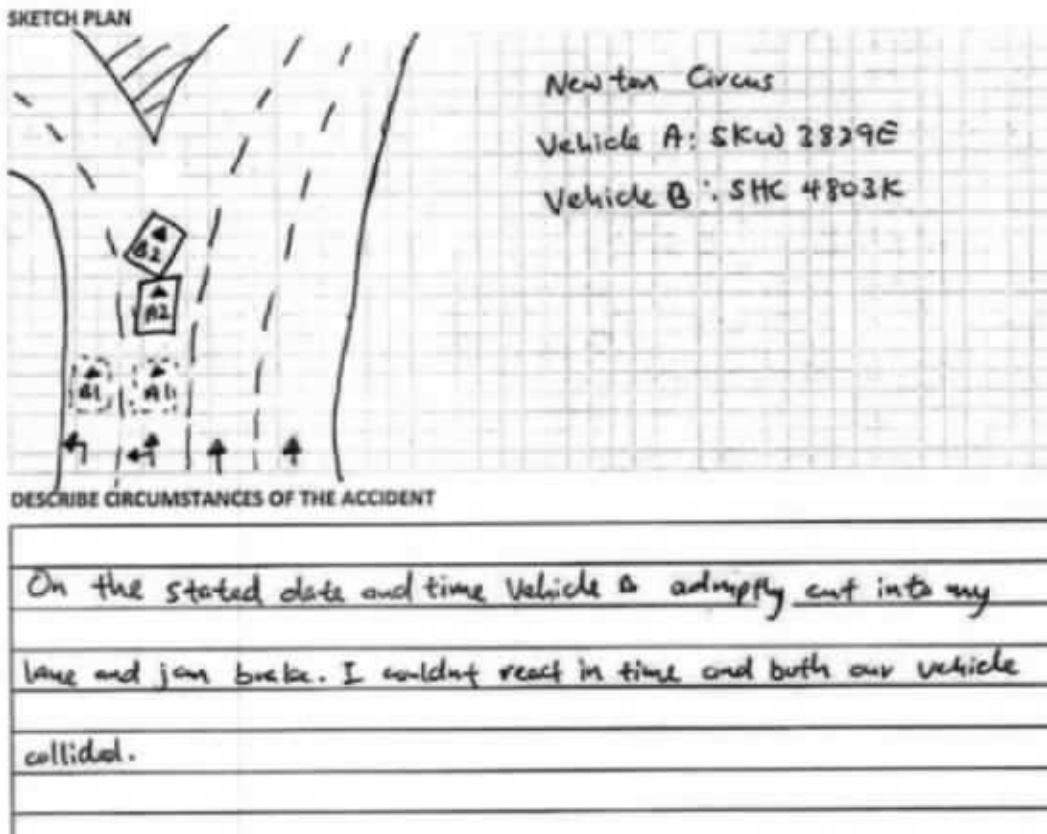 SKETCH PLAN
Newton Circus
Vehicle A: SKW 3829E
Vehicle B: SHC 4803K
B2
A2
B1
A1
DESCRIBE CIRCUMSTANCES OF THE ACCIDENT
On the stated date and time Vehicle B adruptly cut into my
lane and jam brake. I couldnt react in time and both our vehicle
collided.